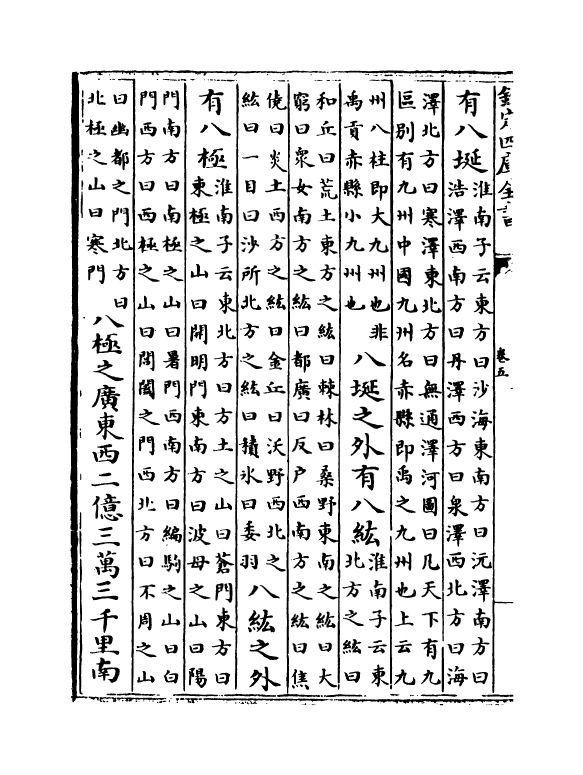 欽定四庫全書
卷五
有八埏
淮南子云東方曰沙海東南方曰沅澤南方曰
浩澤西南方曰丹澤西方曰泉澤西北方曰海
澤北方曰寒澤東北方曰無通澤河圖曰凡天下有九
區别有九州中國九州名赤縣即禹之九州也上云九
州八柱即大九州也非
禹貢赤縣小九州也
八埏之外有八紘
淮南子云東
北方之紘曰
和丘曰荒土東方之紘曰棘林曰桑野東南之紘曰大
窮曰衆女南方之紘曰都廣曰反户西南方之紘曰僬
僥曰炎土西方之紘曰金丘曰沃野西北之
紘曰一目曰沙所北方之紘曰積氷曰委羽
八紘之外
有八極
淮南子云東北方曰方土之山曰蒼門東方曰
東極之山曰開明門東南方曰波母之山曰陽
門南方曰南極之山曰暑門西南方曰編駒之山曰白
門西方曰西極之山曰閶闔之門西北方曰不周之山
曰幽都之門北方曰
北極之山曰寒門
八極之廣東西二億三萬三千里南